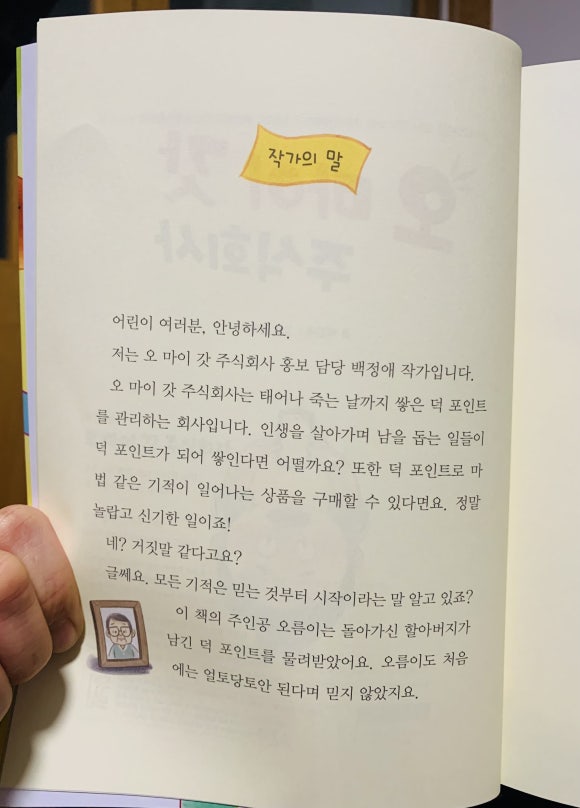 작가의 말
어린이 여러분, 안녕하세요.
저는 오 마이 갓 주식회사 홍보 담당 백정애 작가입니다.
오 마이 갓 주식회사는 태어나 죽는 날까지 쌓은 덕 포인트
를 관리하는 회사입니다. 인생을 살아가며 남을 돕는 일들이
덕 포인트가 되어 쌓인다면 어떨까요? 또한 덕 포인트로 마
법 같은 기적이 일어나는 상품을 구매할 수 있다면요. 정말
놀랍고 신기한 일이죠!
네? 거짓말 같다고요?
글쎄요. 모든 기적은 믿는 것부터 시작이라는 말 알고 있죠?
이 책의 주인공 오름이는 돌아가신 할아버지가
남긴 덕 포인트를 물려받았어요. 오름이도 처음
에는 얼토당토안 된다며 믿지 않았지요.